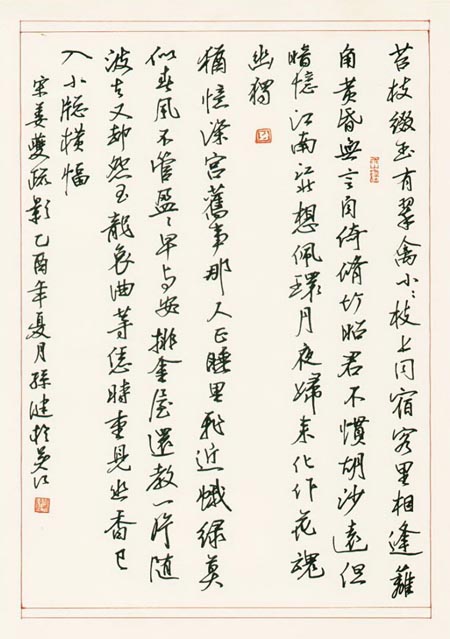 苔枝綴玉有翠禽小〻枝上同宿客里相逢籬
角黄昏無言自倚脩竹昭君不慣胡沙遠但
暗憶江南江北想佩環月夜歸来化作花魂
幽獨
猶憶深宮舊事那人正睡里飛近蛾绿莫
似春風不管盈〻早与安排金屋還教一片随
波去又却怨玉龍哀曲等恁時重見幽香已
入小牕横幅
宋姜夔疏影乙酉年夏月孫健於吴江